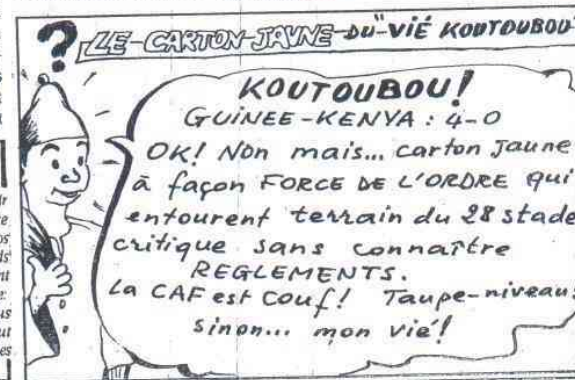 ?
LE CARTON JAUNE DU "VIÉ KOUTOUBOU
KOUTOUBOU!
GUINEE-KENYA : 4-0
OK! Non mais... carton jaune
à façon FORCE DE L'ORDRE qui
entourent terrain du 28 stade
critique sans connaître
REGLEMENTS.
La CAF est couf! Taupe-niveau:
sinon... mon vié!